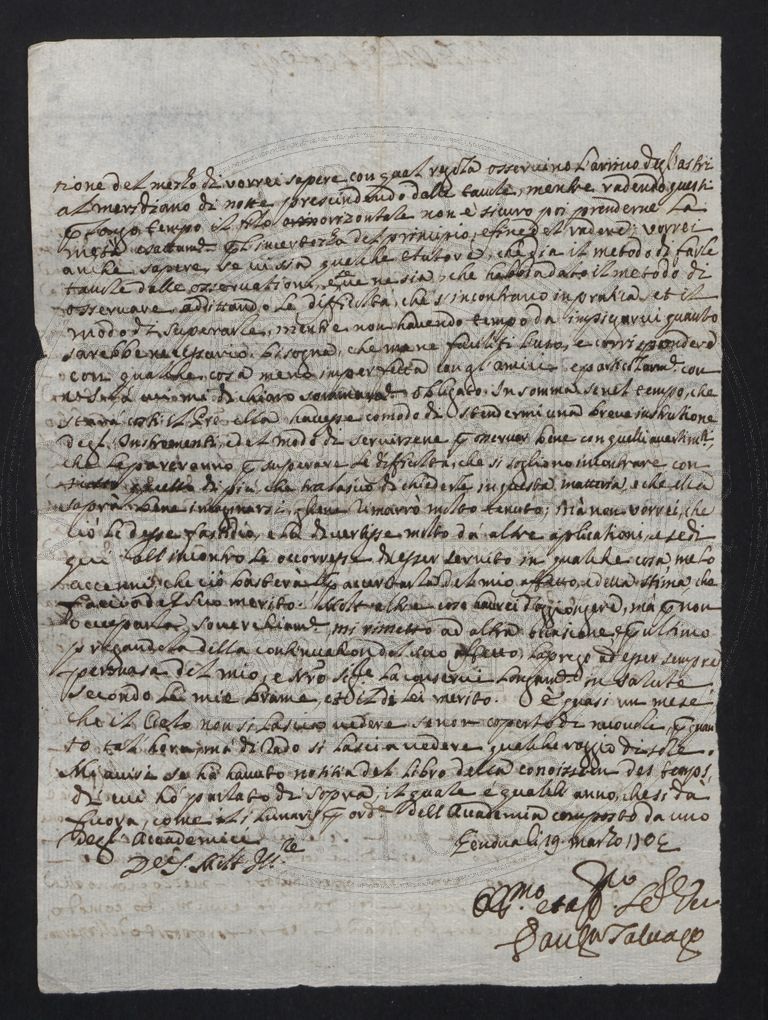 tione del mezzo dì vorrei sapere con qual regola osservino l'arrivo degl'astri
al meridiano di notte prescindendo dalle taule, mentre radendo questi
p longo tempo il filo orizontale non è sicuro poi prenderne la
metà esattam.te p l'incertezza del principio, e fine del radere; vorrei
anche sapere, se vi sia qualche Autore, che dia il metodo di farle
taule delle osservationi, e se ne sia, che habbia dato il metodo di
osservare additando le difficoltà, che s'incontrano in pratica, et il
modo di superarle, mentre non havendo tempo da impiegarvi quanto
sarebbe necessario, bisogna, che me ne faciliti l'uso, e corrisponderò
con qualche cosa meno imperfetta con gl'amici, e particolarm.te con
obligato. In somma se nel tempo, che
starà costì il Pre ella havesse comodo di stendermi una breve instrutione
degl'Instromenti, e del modo di servirsene p osservar bene con quelli avertim.ti,
che le pareranno p superare le difficoltà, che si sogliono incontrare con
quello di più, che tralascio di chiederle in questa materia, e che ella
saprà bene imaginarsi, gliene rimarrò molto tenuto; Ma non vorrei, che
ciò le desse fastidio, e la divertisse molto da altre aplicationi, e se di
quì all'incontro le occorresse d'esser servito in qualche cosa, me lo
accenni, che ciò basterà p accertarla del mio affetto, e della stima, che
faccio del suo merito. Molt'altre cose haurei d'aggiongere, mà p non
occuparla soverchiam.te mi rimetto ad altra occasione, e p ultimo
pregandola della continuatione del suo affetto, la prego ad esser sempre
persuasa del mio, e Nro Sig.re la conservi longam.te in salute
secondo le mie brame, et il di lei merito. È quasi un mese
che il Cielo non si lascia vedere se non coperto di nuvole, p quan
to tal hora, mà di rado si lascia vedere qualche raggio di sole.
M'avisi se hà havuto notitia del libro della conoissance des temps,
di cui hò parlato di sopra, il quale è quell' anno, che si dà
fuora, come i lunarij p ord.e dell'Academia composto da uno
degl'Accademici
Di V.S. Molt Ill.re
Genova li 19 marzo 1702
Obl.mo et aff.mo Se.re Vro
Paris M.a Salvago